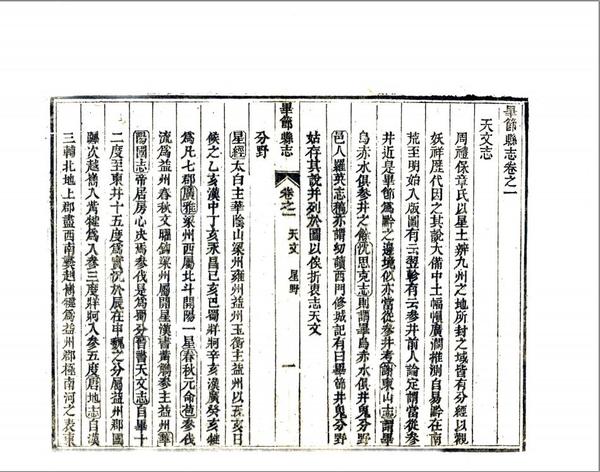 畢節縣志卷之一
天文志
周禮保章氏以星土辨九州之地所封之域皆有分經以觀
妖祥歷代因之其說大備中土幅幀廣濶推測自易黔在南
荒至明始入版圖有云翌軫有云參井前人論定謂當從參
井近是畢節為黔之邊境似亦當從參井考謝東山志謂畢
烏赤水俱參井之餘沈思克志則謂畢烏赤水俱井鬼分野
邑人羅英志稿亦謂幼讀西門修城記有曰畢節井鬼分野
姑存其說并列於圖以俟折衷志天文
畢節縣志
卷之一
天文 星野
一
分野
星經太白主華陰山梁州雍州益州玉衡主益州以五亥日
候之乙亥漢中丁亥永昌己亥巴蜀牂牁辛亥漢廣癸亥犍
為凡七郡廣雅梁州西屬北斗開陽一星春秋元命苞參伐
流為益州春秋文曜鉤梁州屬開星漢書觜觿參主益州華
陽國志帝居房心決焉參伐是為蜀分晉書天文志自畢十
二度至東井十五度為實沈於辰在申魏之分屬益州郡國
縣次越嶲入觜犍為入參三度牂牁入參五度唐地志自漢
三輔北地上郡盡西南夷越嶲犍為益州郡極南河之表東